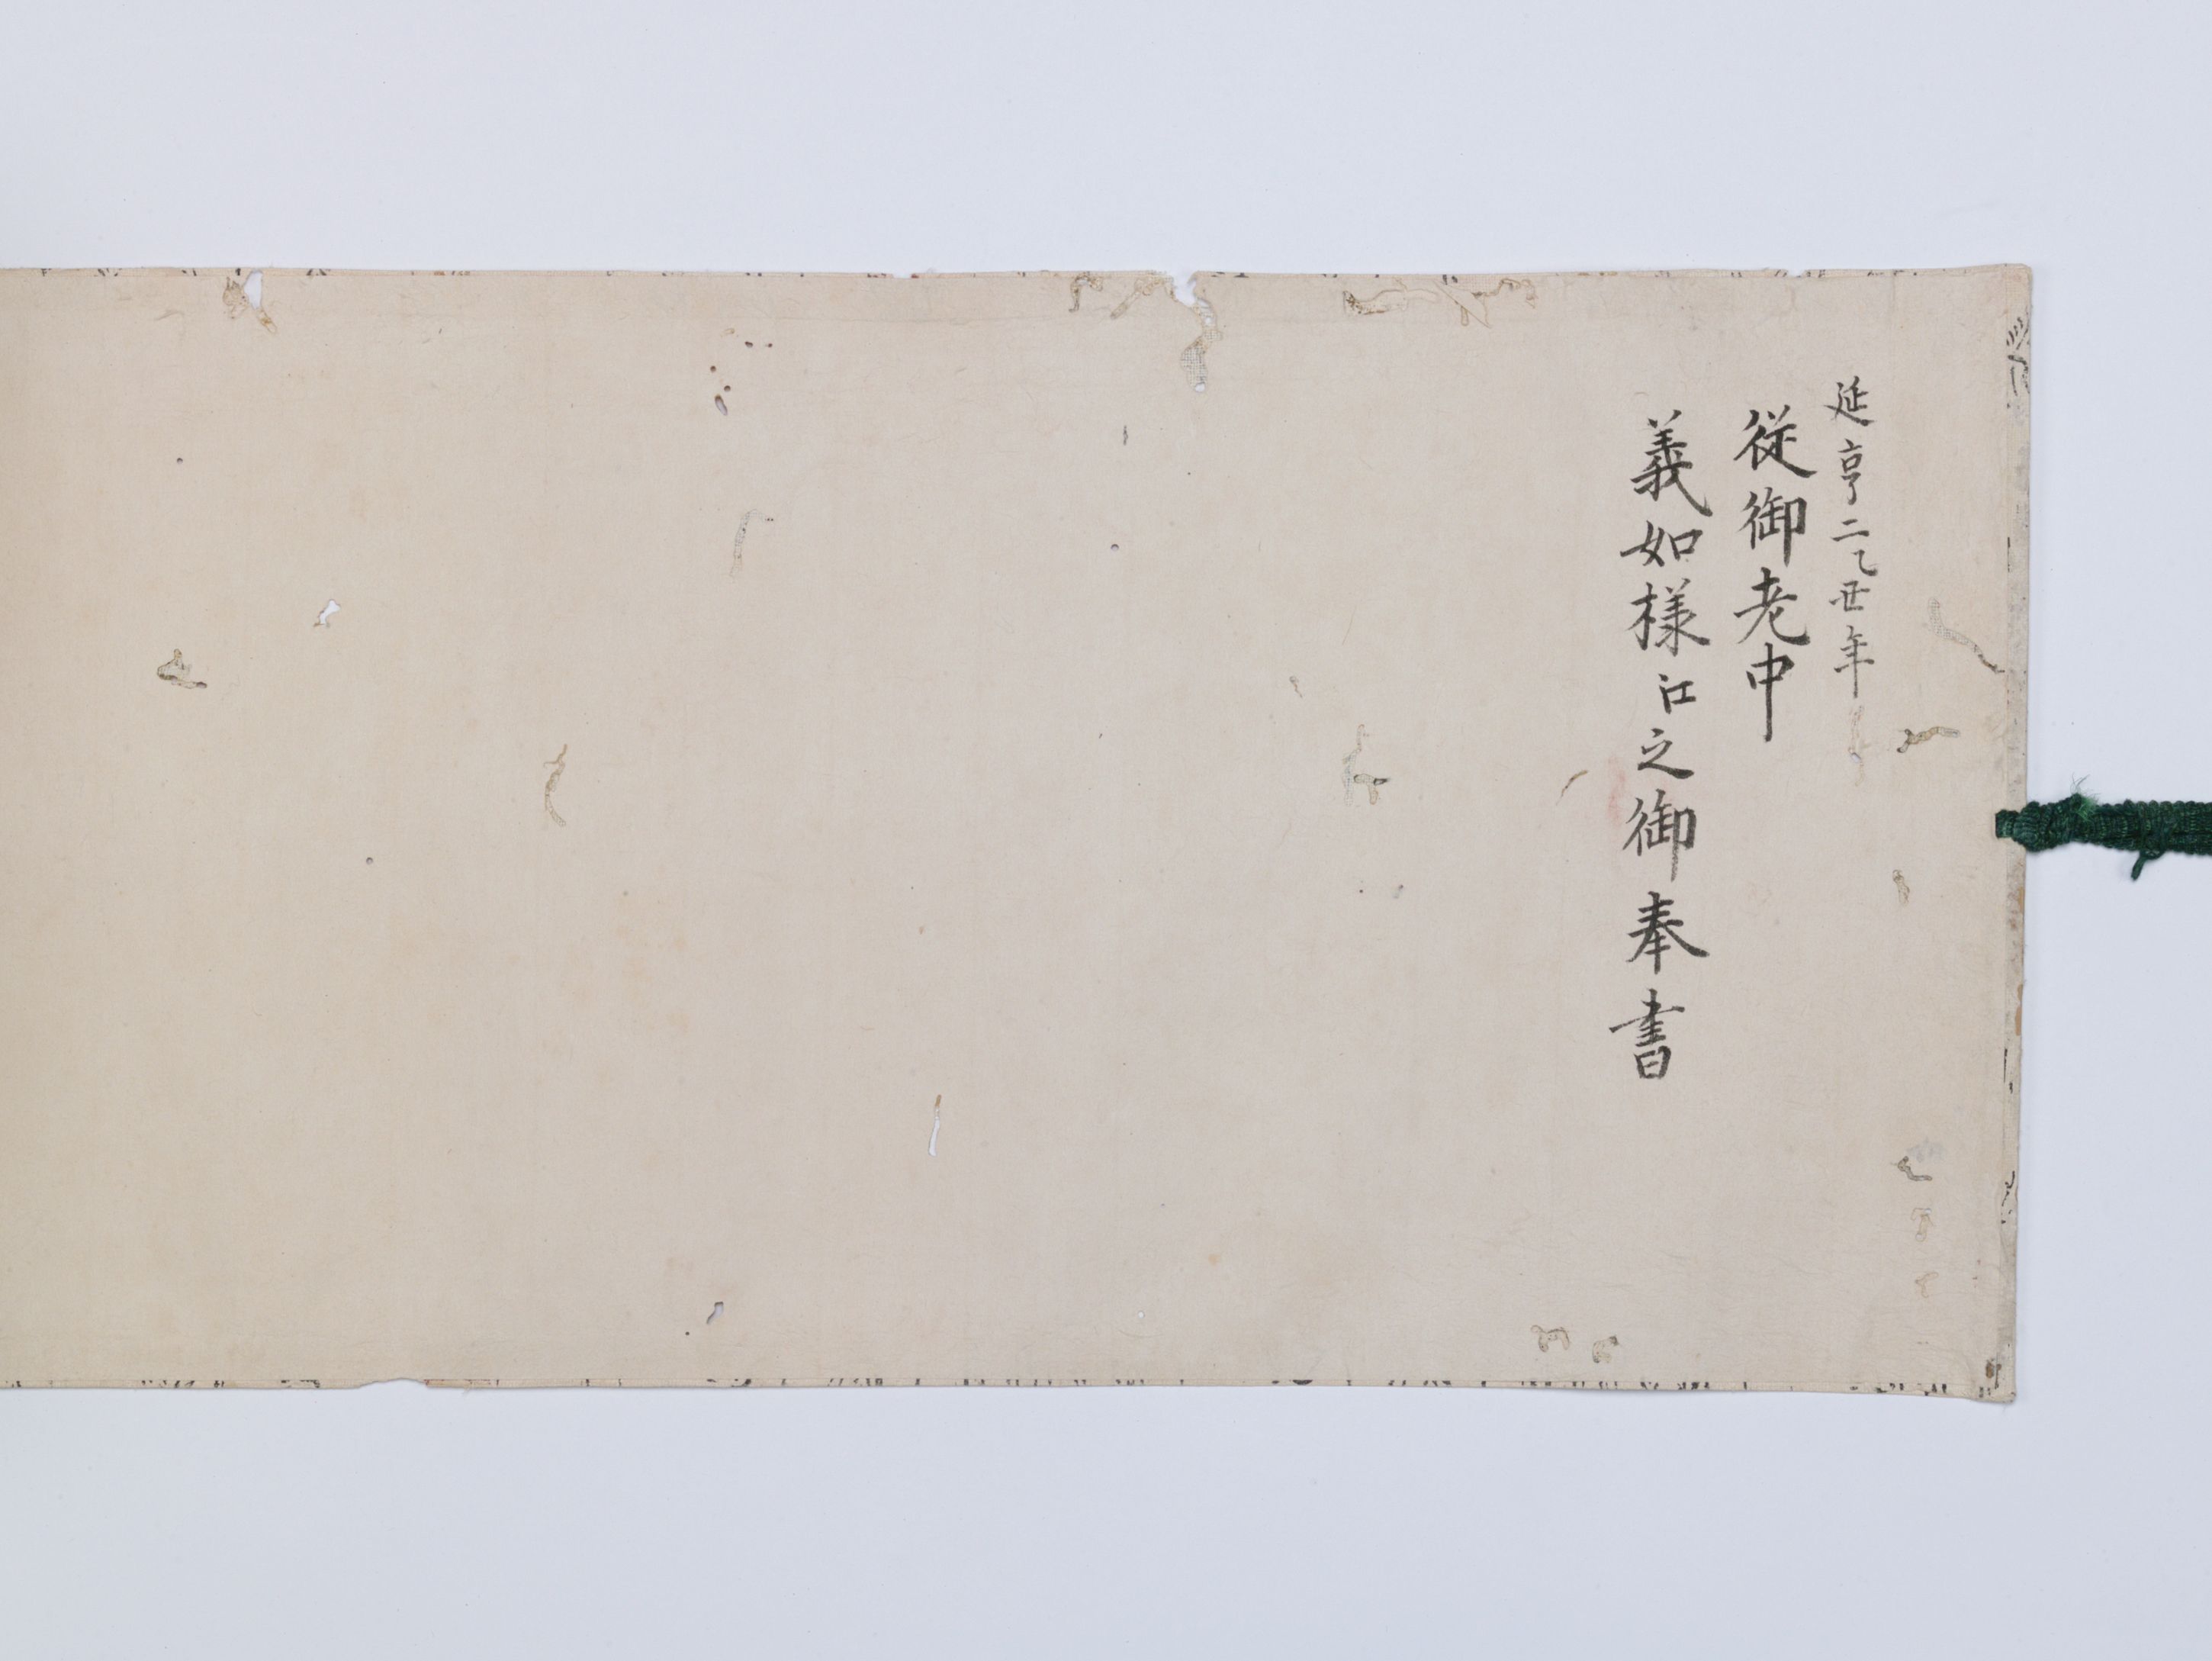 延享二乙丑年
従御老中
義如様江之御奉書